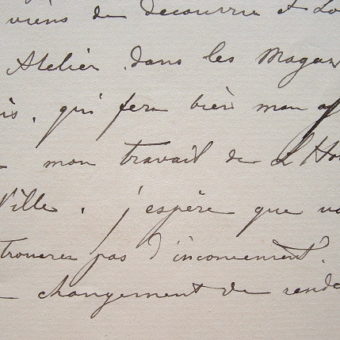 viens de decouvrir et Lo
Atelier dans les Magas
is, qui fera bien mon af
mon travail de l'Ho
Ville. j'espère que vo
trouverez pas d'inconvenient
changement de rende